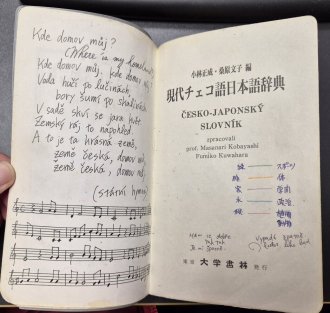 Kde domov můj?
(Where is my homeland?)
Kde domov můj, kde domov můj
Voda hučí po lučinách,
bory šumí po skalinách
V sadě skví se jara květ
Zemský ráj to napohled.
A to je ta krásná země,
země česká, domov můj,
země česká, domov můj.
(státní hymna)
小林正成・桑原文子 編
現代チェコ語日本語辞典
ČESKO-JAPONSKÝ
SLOVNÍK
zpracovali
prof. Masanari Kobayashi
Fumiko Kuwahara
スポーツ
体
学術
政治
植物
動物
東京 大学書林 発行